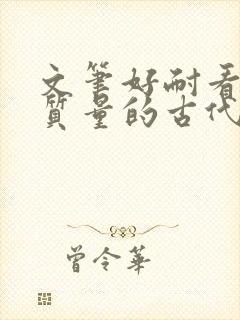 文笔好耐看
質量的古代
曾令華